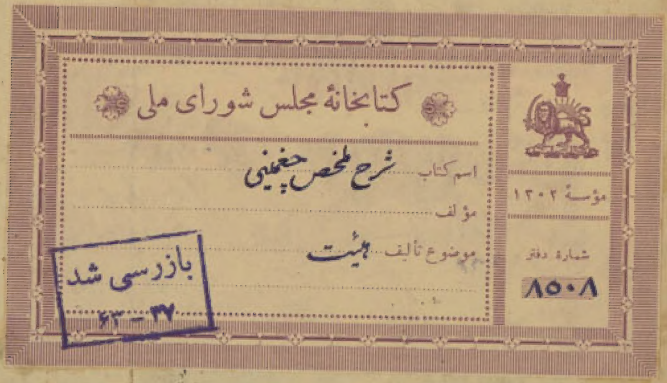 کتابخانهٔ مجلس شورای ملی
اسم کتاب شرح ملخص چغمینی
مؤلف
موضوع تألیف هیئت
مؤسسهٔ ۱۳۰۲
شمارهٔ دفتر
۸۵۰۸
بازرسی شد
۶۳ - ۳۷